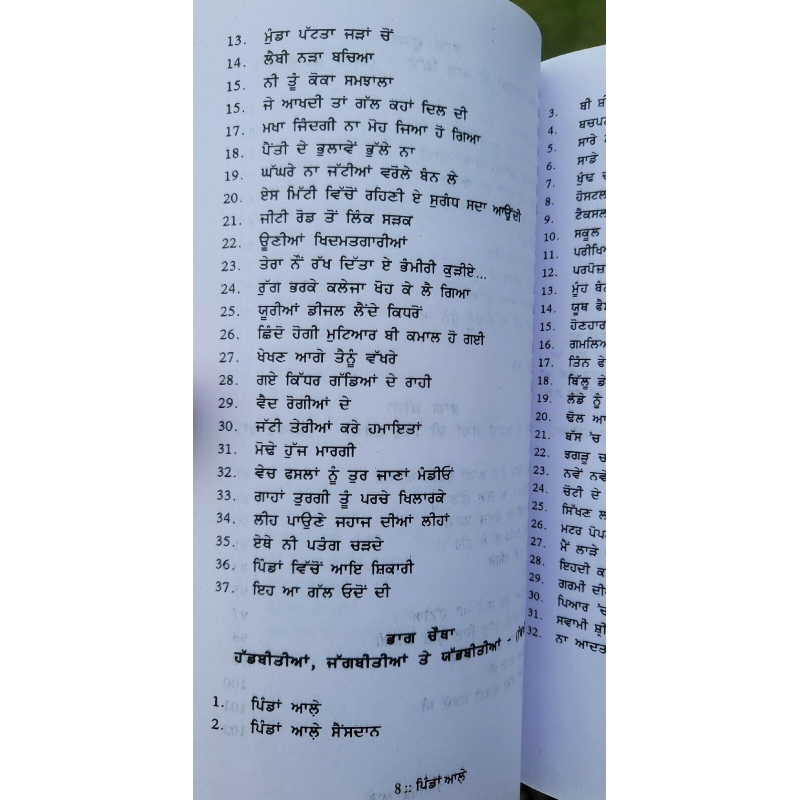 13. ਮੁੰਡਾ ਪੱਟਤਾ ਜੜਾਂ ਚੋਂ
14. ਲੈਬੀ ਨੜਾ ਬਚਿਆ
15. ਨੀ ਤੂੰ ਕੋਕਾ ਸਮਝਾਲਾ
15. ਜੇ ਆਖਦੀ ਤਾਂ ਗੱਲ ਕਹਾਂ ਦਿਲ ਦੀ
17. ਮਖਾ ਜਿੰਦਗੀ ਨਾ ਮੋਹ ਜਿਆ ਹੋ ਗਿਆ
18. ਪੈਂਤੀ ਦੇ ਭੁਲਾਵੇਂ ਭੁੱਲੇ ਨਾ
19. ਘੱਘਰੇ ਨਾ ਜੱਟੀਆਂ ਵਰੋਲੇ ਬੰਨ ਲੇ
20. ਏਸ ਮਿੱਟੀ ਵਿੱਚੋਂ ਰਹਿਣੀ ਏ ਸੁਗੰਧ ਸਦਾ ਆਉਂਦੀ
21. ਜੀਟੀ ਰੋਡ ਤੋਂ ਲਿੰਕ ਸੜਕ
22. ਊਣੀਆਂ ਖਿਦਮਤਗਾਰੀਆਂ
23. ਤੇਰਾ ਨੌਂ ਰੱਖ ਦਿੱਤਾ ਏ ਭੰਮੀਰੀ ਕੁੜੀਏ...
24. ਰੁੱਗ ਭਰਕੇ ਕਲੇਜਾ ਖੋਹ ਕੇ ਲੈ ਗਿਆ
25. ਯੂਰੀਆਂ ਡੀਜਲ ਲੈਂਦੇ ਕਿਧਰੋਂ
26. ਛਿੰਦੋ ਹੋਗੀ ਮੁਟਿਆਰ ਬੀ ਕਮਾਲ ਹੋ ਗਈ
27. ਖੇਖਣ ਆਗੇ ਤੈਨੂੰ ਵੱਖਰੇ
28. ਗਏ ਕਿੱਧਰ ਗੱਡਿਆਂ ਦੇ ਰਾਹੀ
29. ਵੈਦ ਰੋਗੀਆਂ ਦੇ
30. ਜੱਟੀ ਤੇਰੀਆਂ ਕਰੇ ਹਮਾਇਤਾਂ
31. ਮੋਢੇ ਹੁੱਜ ਮਾਰਗੀ
32. ਵੇਚ ਫਸਲਾਂ ਨੂੰ ਤੁਰ ਜਾਣਾਂ ਮੰਡੀਓਂ
33. ਗਾਹਾਂ ਤੁਰਗੀ ਤੂੰ ਪਰਚੇ ਖਿਲਾਰਕੇ
34. ਲੀਹ ਪਾਉਣੇ ਜਹਾਜ ਦੀਆਂ ਲੀਹਾਂ
35. ਏਥੇ ਨੀ ਪਤੰਗ ਚੜਦੇ
36. ਪਿੰਡਾਂ ਵਿੱਚੋਂ ਆਇ ਸ਼ਿਕਾਰੀ
37. ਇਹ ਆ ਗੱਲ ਓਦੋਂ ਦੀ
ਭਾਗ ਚੌਥਾ
ਹੱਡਬੀਤੀਆਂ, ਜੱਗਬੀਤੀਆਂ ਤੇ ਯੱਡਬੀਤੀਆਂ -
1. ਪਿੰਡਾਂ ਆਲ਼ੇ
2. ਪਿੰਡਾਂ ਆਲ਼ੇ ਸੈਂਸਦਾਨ
8 :: ਪਿੰਡਾਂ ਆਲ਼ੇ
3. ਬੀ
4. ਬਚਪਨ
5. ਸਾਰੇ
6. ਸਾਡੇ
7. ਖੁੰਢ
8. ਹੋਸਟਲ
9.
10. ਸਕੂਲ
11.
12. ਪਰਪੋਜ਼
13. ਮੂੰਹ ਬੰਨ
14. ਯੂਥ
15. ਹੋਣਹਾਰ
16.
17. ਤਿੰਨ
18. ਬਿੱਲੂ
19. ਲੰਡੇ ਨੂੰ
20. ਢੋਲ
21. ਬੱਸ 'ਚ
22. ਝਗੜੂ
23. ਨਵੇਂ ਨਵੇਂ
24. ਚੋਟੀ ਦੇ
25. ਸਿੱਖਣ
26. ਮਟਰ
27. ਮੈਂ ਲਾੜੇ
28. ਇਹਦੀ
29. ਗਰਮੀ
30. ਪਿਆਰ 'ਚ
31. ਸਵਾਮੀ ਸ਼੍ਰੀ
32. ਨਾ ਆਦਤ